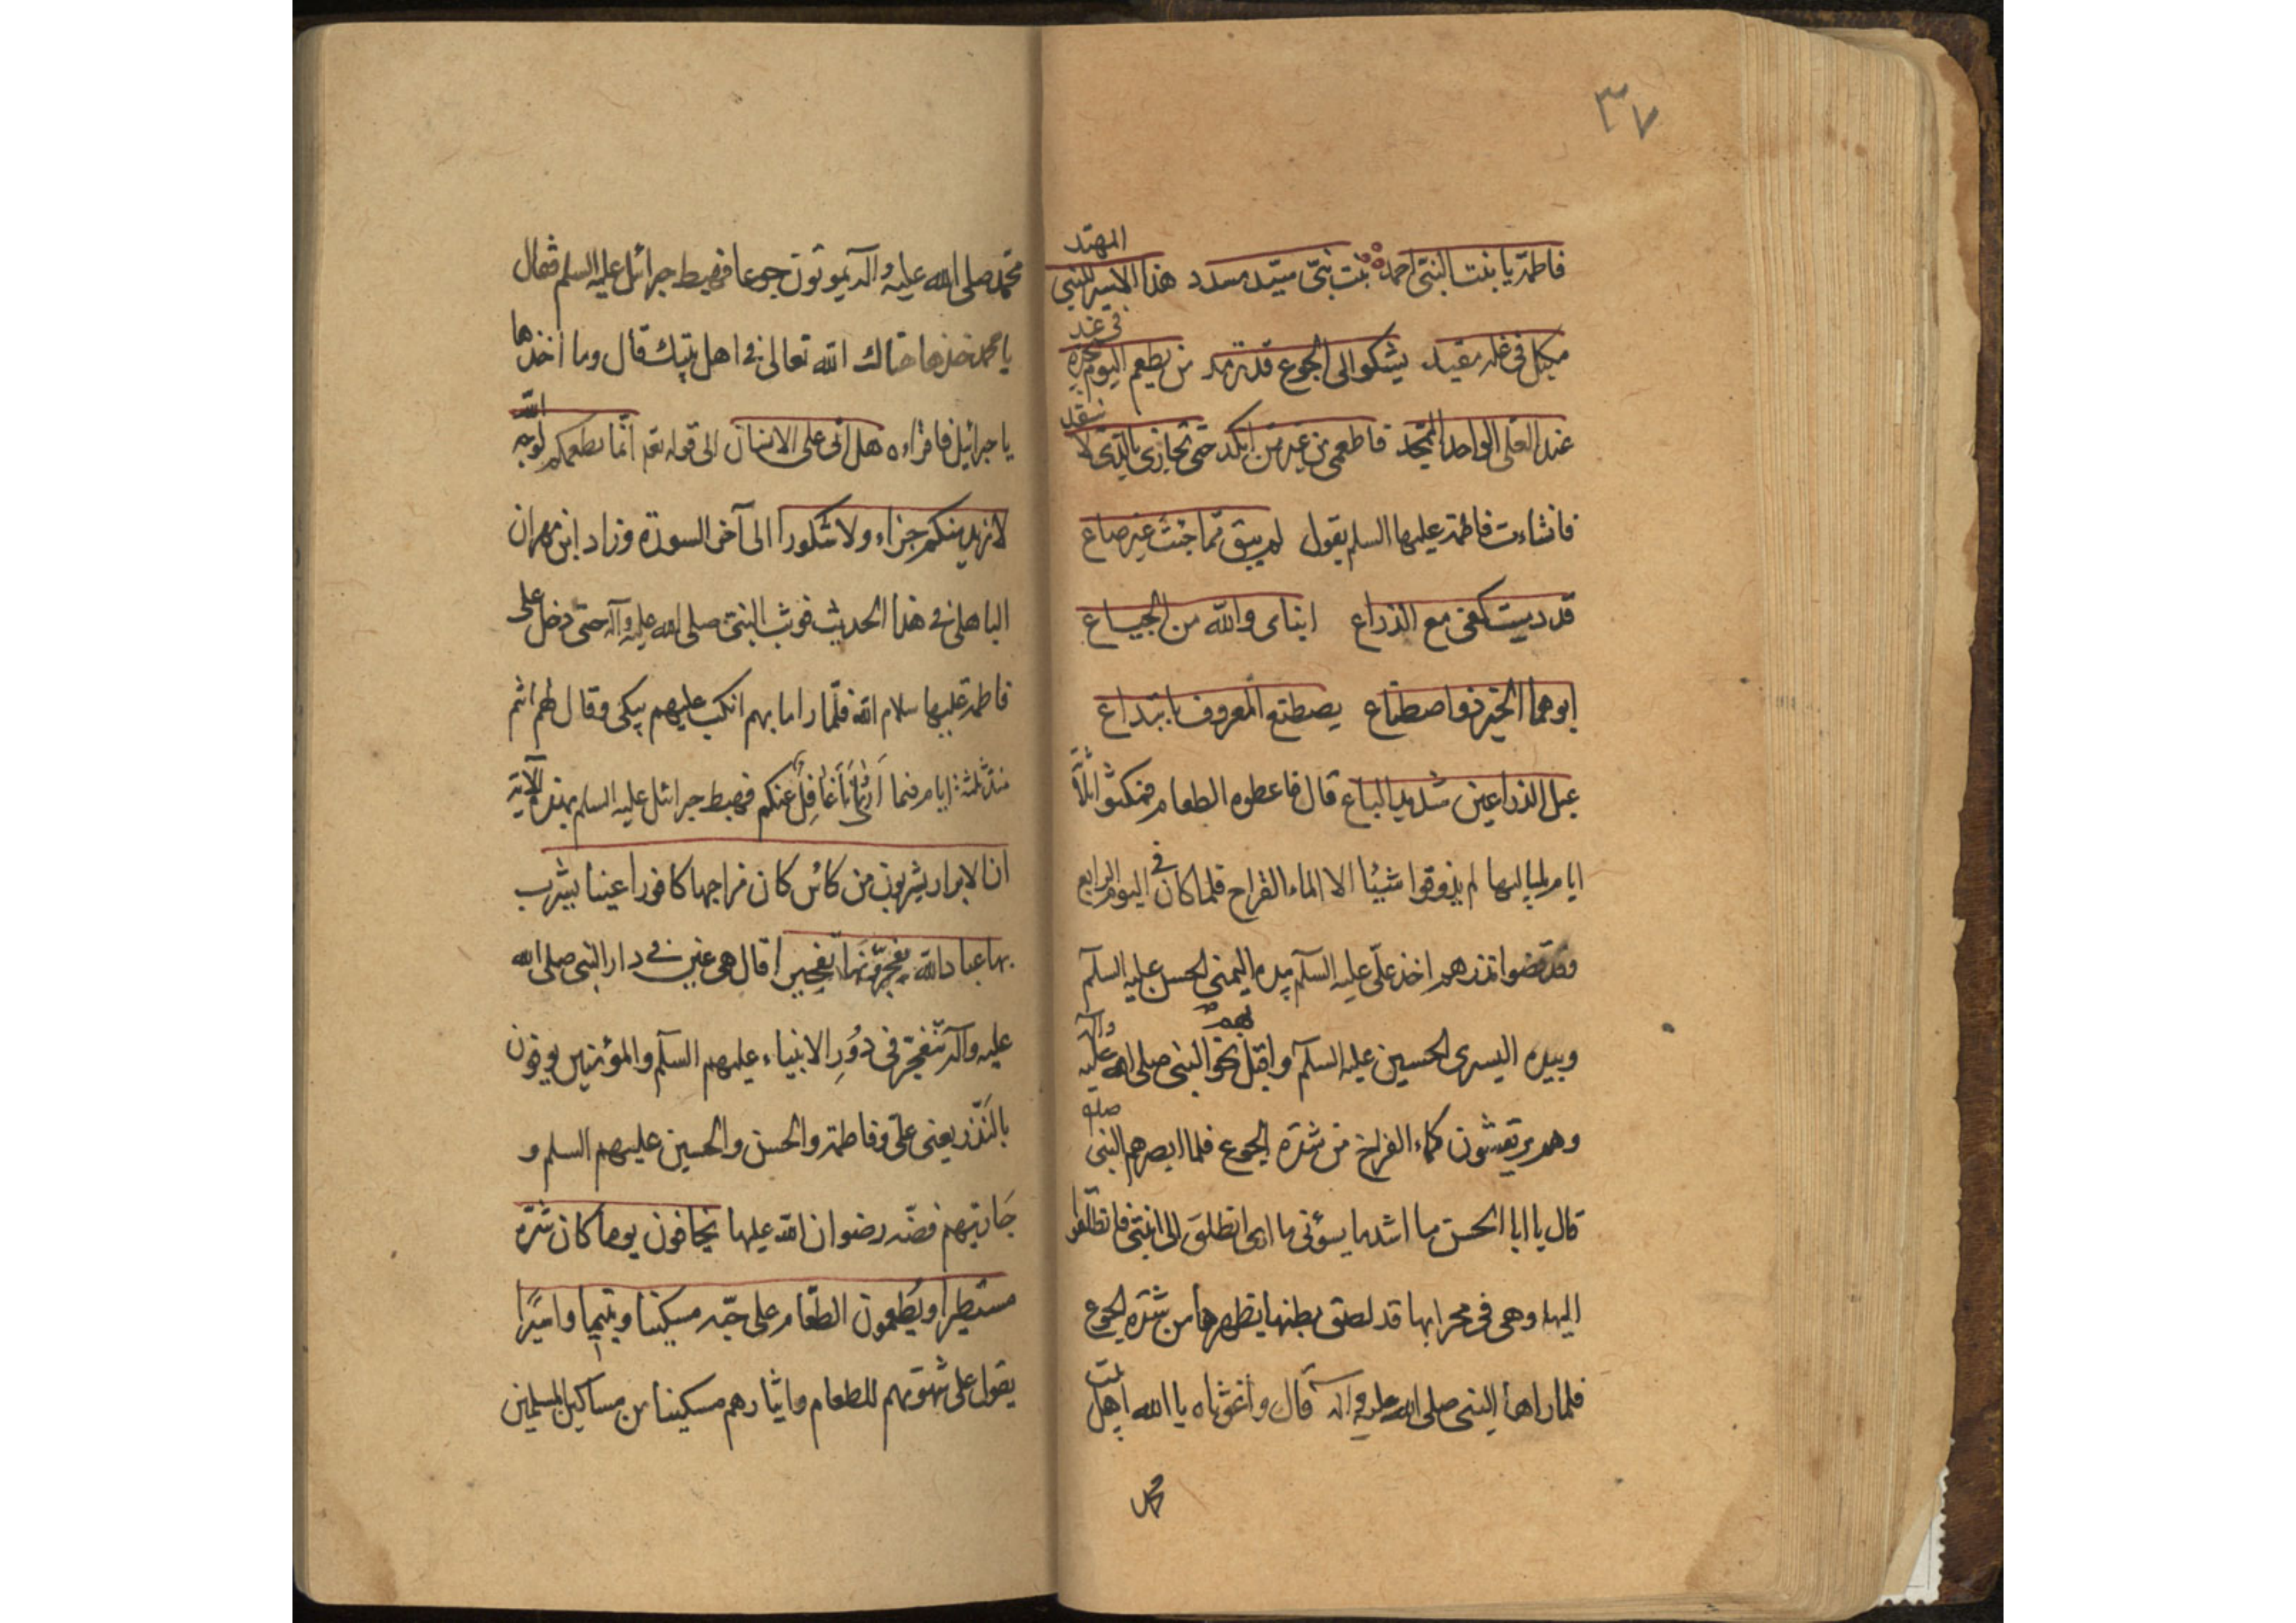 ٣٧
فاطمة يا بنت النبى احمد بنت نبى سيد مسدد هذا الاسير للنبي المهتد
مكبل فى غله مقيد يشكو الى الجوع قد تمدد من يطعم اليوم يجده فى غد
عند العلى الواحد الممجد فاطعمى من غير من انكد حتى تجازى بالذى لا ينفد
فانشاءت فاطمة عليها السلم يقول لم يبق مما جئت غير صاع
قد دميت كفى مع الذراع ابناى والله من الجياع
ابوهما الخير ذو اصطناع يصطنع المعروف بابتداع
عبل الذراعين شديد الباع قال فاعطوه الطعام فمكثوا ثلثة
ايام بلياليها لم يذوقوا شيئا الا الماء القراح فلما كان فى اليوم الرابع
فقد قضوا نذرهم اخذ على عليه السلم بيده اليمنى الحسن عليه السلم
وبيده اليسرى الحسين عليه السلم واقبل بهم نحو النبى صلى الله عليه وآله
وهم يرتعشون كماء الفراخ من شدة الجوع فلما ابصرهم النبى
قال يا ابا الحسن ما اشد ما يسؤنى ما ارى انطلق الى ابنتى فانطلقوا
اليها وهى فى محرابها قد لصق بطنها بظهرها من شدة الجوع
فلما راها النبى صلى الله عليه وآله قال واغوثاه يا الله اهل بيت
محمد
محمد صلى الله عليه وآله يموتون جوعا فهبط جبرائيل عليه السلم فقال
يا محمد خذها هناك الله تعالى فى اهل بيتك قال وما اخذها
يا جبرائيل فاقراءه هل اتى على الانسان الى قوله انما نطعمكم لوجه الله
لا نريد منكم جزاء ولا شكورا الى آخر السورة وزاد ابن مهران
الباهلى فى هذا الحديث فوثب النبى صلى الله عليه وآله حتى دخل على
فاطمة عليها سلام الله فلما راما بهم انكب عليهم يبكى وقال لهم انتم
منذ ثلثة ايام فيما ارى انا غافل عنكم فهبط جبرائيل عليه السلم بهذه الآية
ان الابرار يشربون من كاس كان مزاجها كافورا عينا يشرب
بها عباد الله يفجرونها تفجيرا قال هى عين فى دار النبى صلى الله
عليه وآله تنفجر فى دور الانبياء عليهم السلم والمؤمنين يوفون
بالنذر يعنى على وفاطمة والحسن والحسين عليهم السلم و
جاريتهم فضه رضوان الله عليها يخافون يوما كان شره
مستطيرا ويطعمون الطعام على حبه مسكينا ويتيما واسيرا
يقول على شهوتهم للطعام وايثارهم مسكينا من مساكين المسلمين